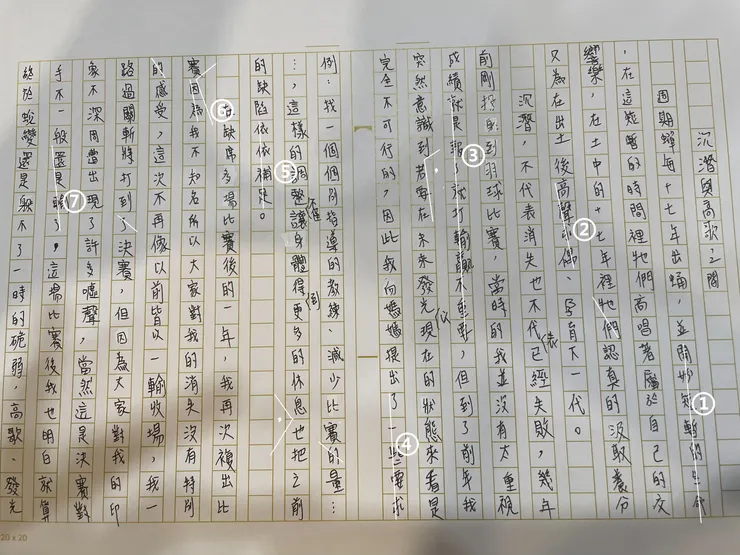 沉潛與高歌之間
週期蟬每十七年出蛹，並開始短暫的生命
，在這短暫的時間裡牠們高唱著屬於自己的交
響樂，在土中的十七年裡牠們認真的汲取養分
又為在出土後高聲求偶、孕育下一代。
沉潛，不代表消失也不代已經失敗，幾年
前剛接觸到羽球比賽，當時的我並沒有太重視
成績就是報了就打輸贏不重要，但到了前年我
突然意識到若要在未來發光現在的狀態來看是
完全不可行的，因此我向媽媽提出了一些要求
例：找一個個別指導的教練、減少比賽的量…
…，這樣的調整讓身體得更多的休息也把之前
的缺陷依依補足。
在缺席多場比賽後的一年，我再次複出比
賽因為我不知名所以大家對我的消失沒有特別
的感受，這次不再像以前皆以一輸收場，我一
路過關斬將打到了決賽，但因為大家對我的印
象不深周遭出現了許多噓聲，當然這是決賽對
手不一般還是輸了，這場比賽後我也明白就算
終於蛻變還是躲不了一時的脆弱，高歌、發光
①
②
③
④
⑤
⑥
⑦
20 x 20